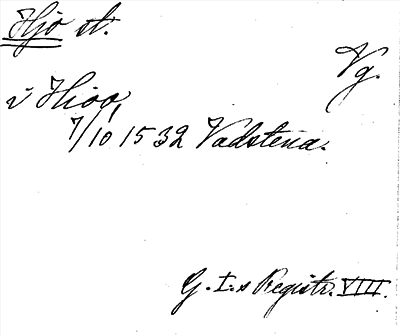 Hjo st.
Vg.
i Hioo,
7/10 1532 Vadstena.
G. I.s Registr. VIII.